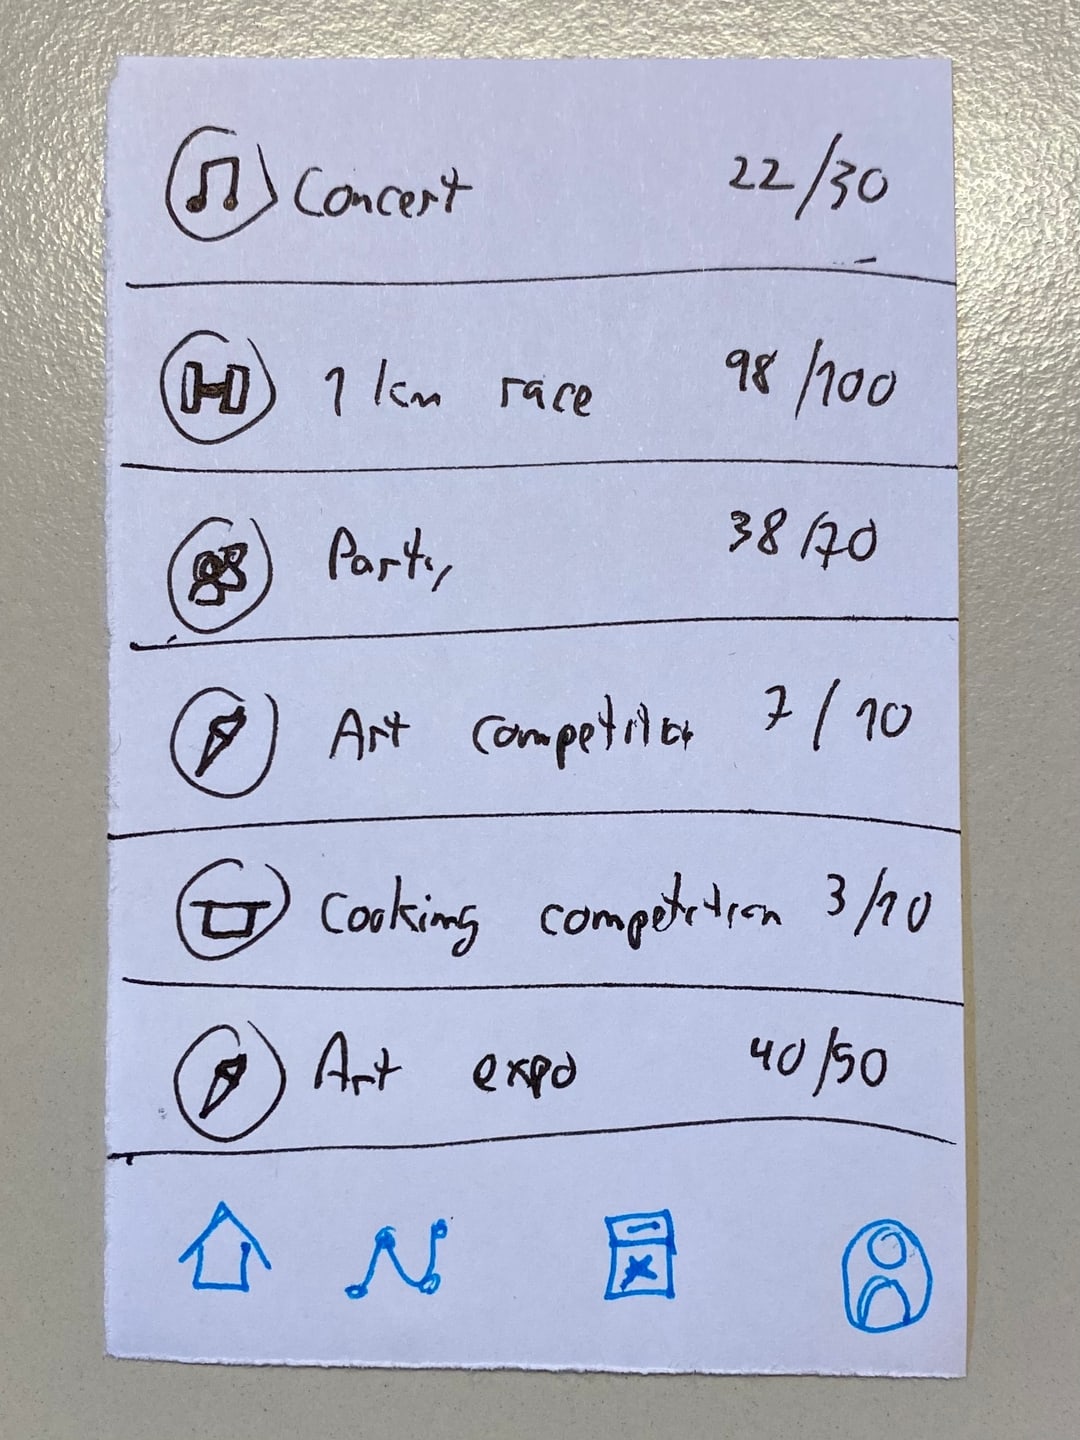 Concert 22/30
1 km race 98/100
Party 38/70
Art competition 7/10
Cooking competition 3/10
Art expo 40/50